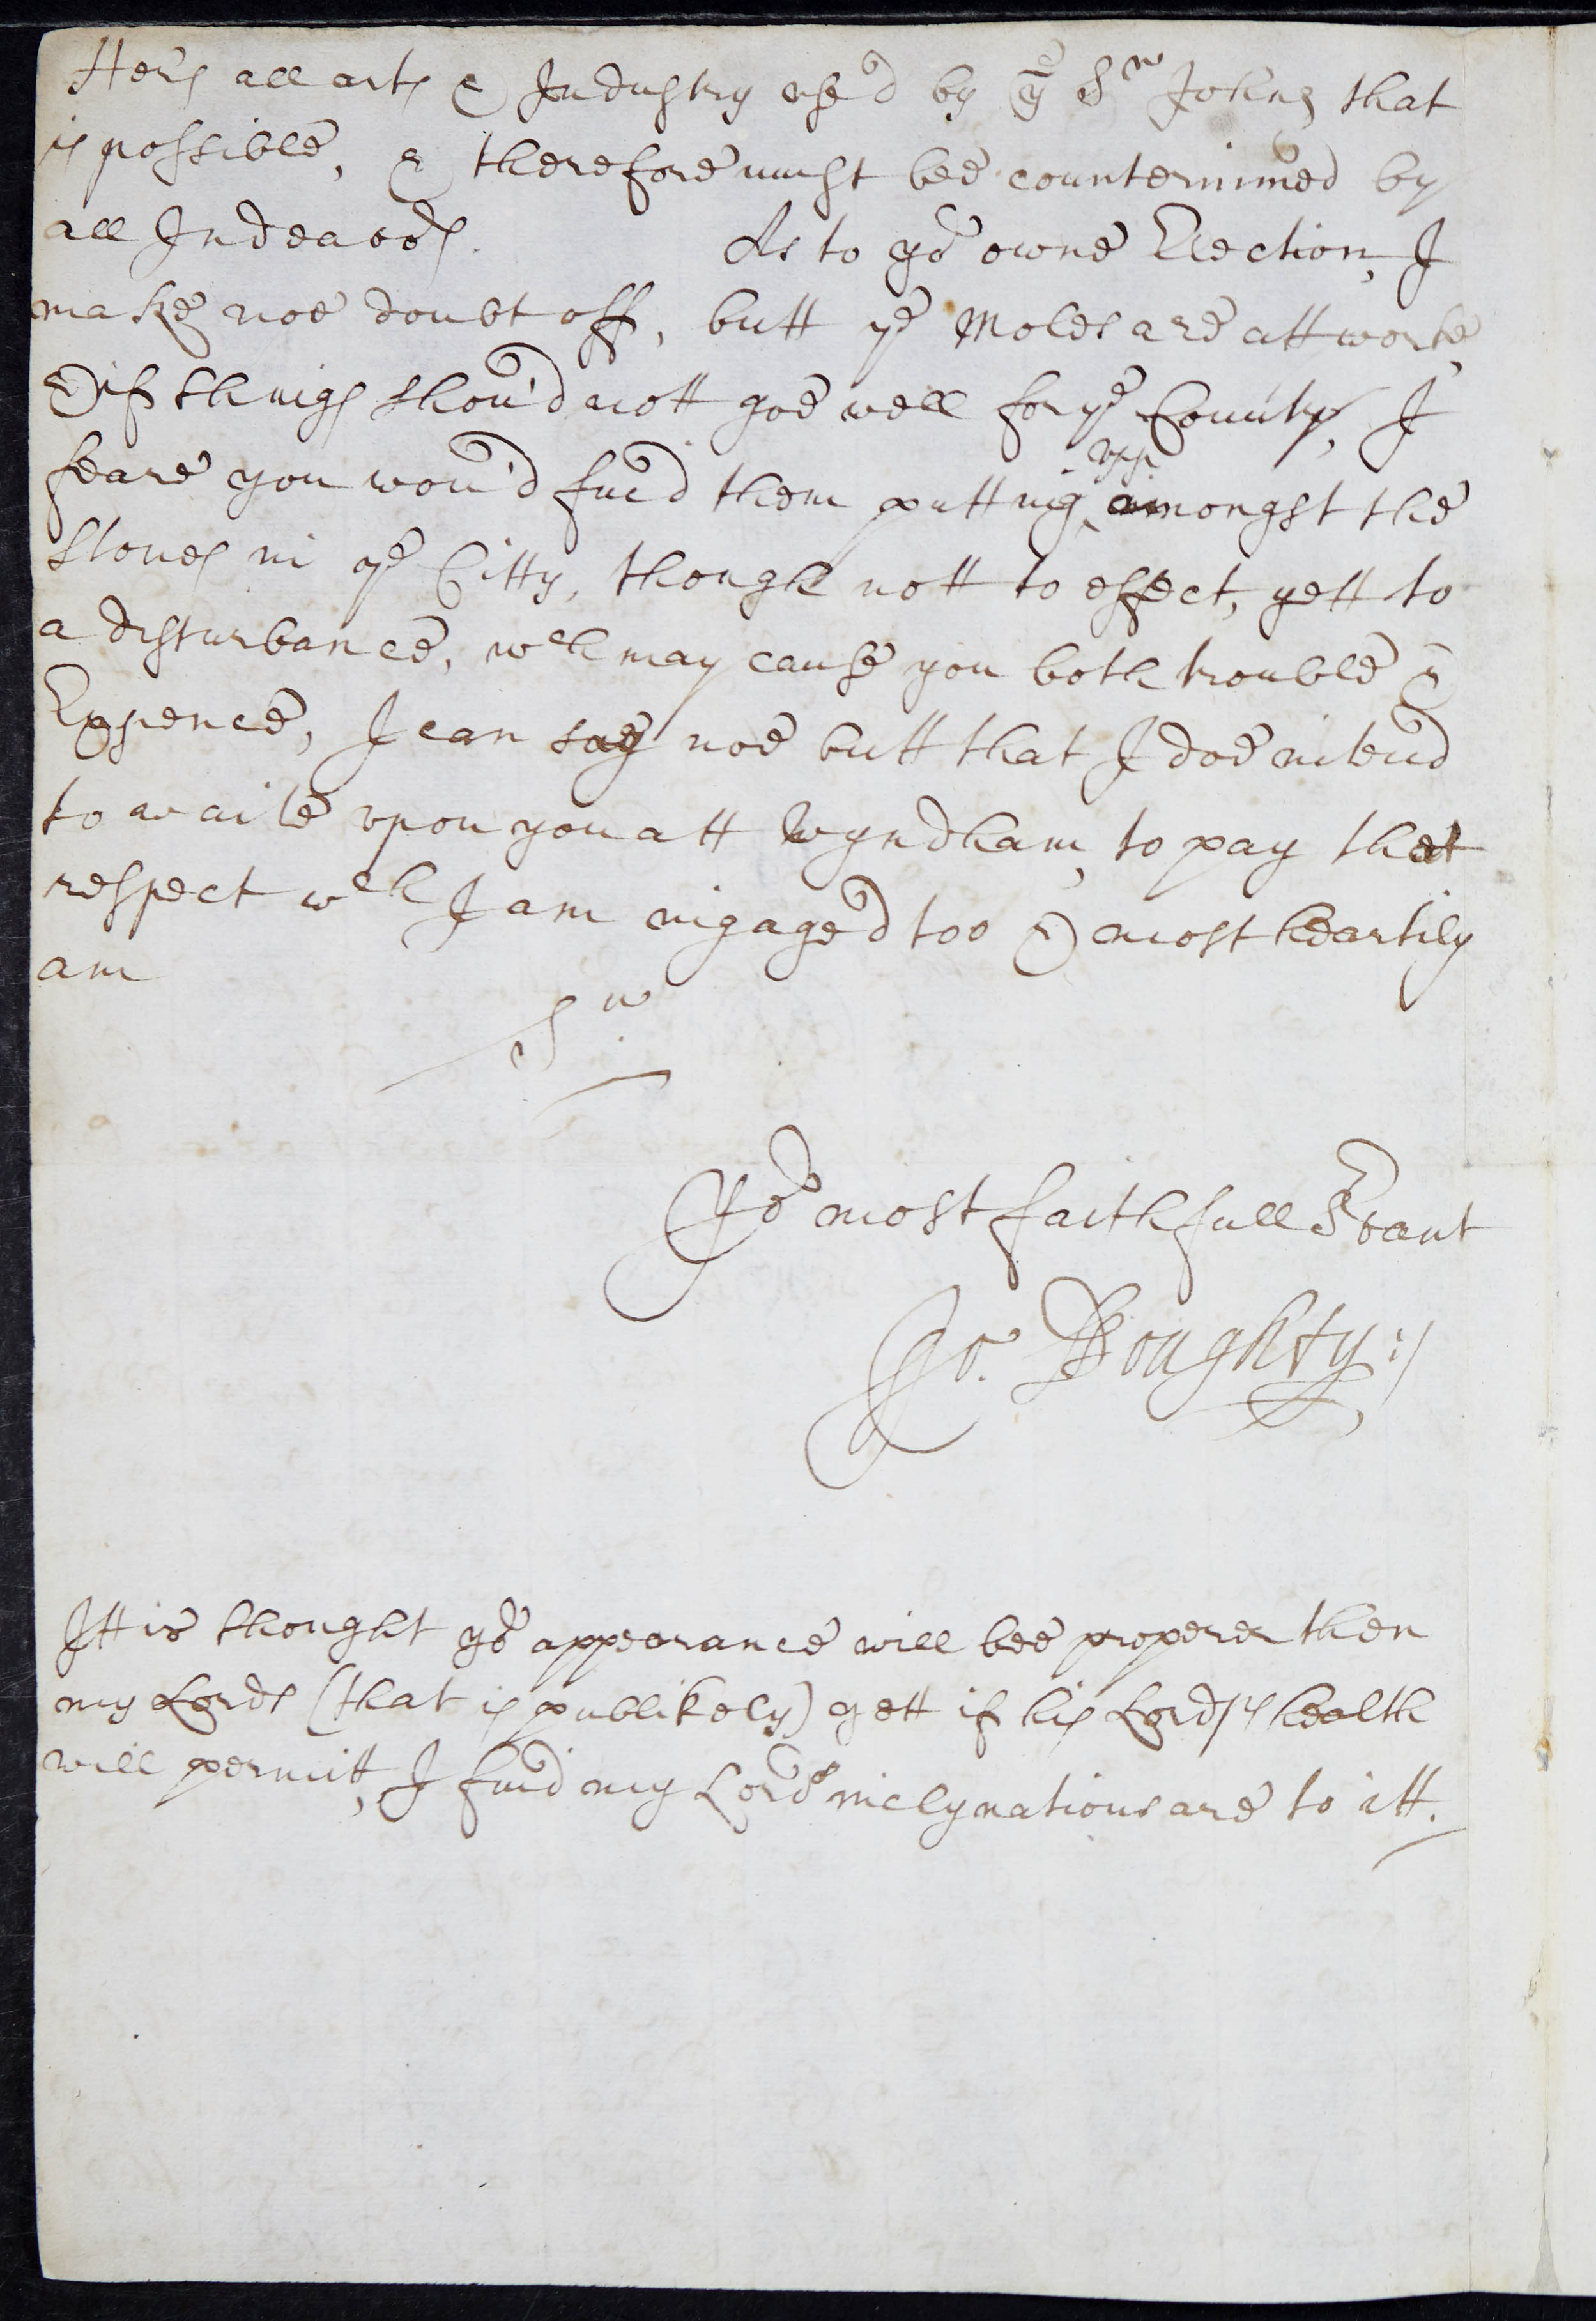 Hers all arts & Industry used by ye Sr Johns that
is possible, & therefore must bee countermined by
all Indeavors. As to yor owne Election, I
make noe doubt off, butt ye Moles are att worke,
& if things shou'd nott goe well for ye County, I
feare you wou'd find them putting upp amongst the
stones in ye Citty, though nott to effect, yett to
a disturbance, wch may cause you both trouble &
Expence, I can say noe butt that I doe intend
to waite vpon you att Wyndham, to pay that
respect wch I am ingaged too & most heartily
am
Sr
Yor most faithfull Servant
Jo. Doughty:/
Itt is thought yor appearance will bee properer then
my Lords (that is publikely) yett if his Lordps health
will permitt, I find my Lords inclynations are to itt.